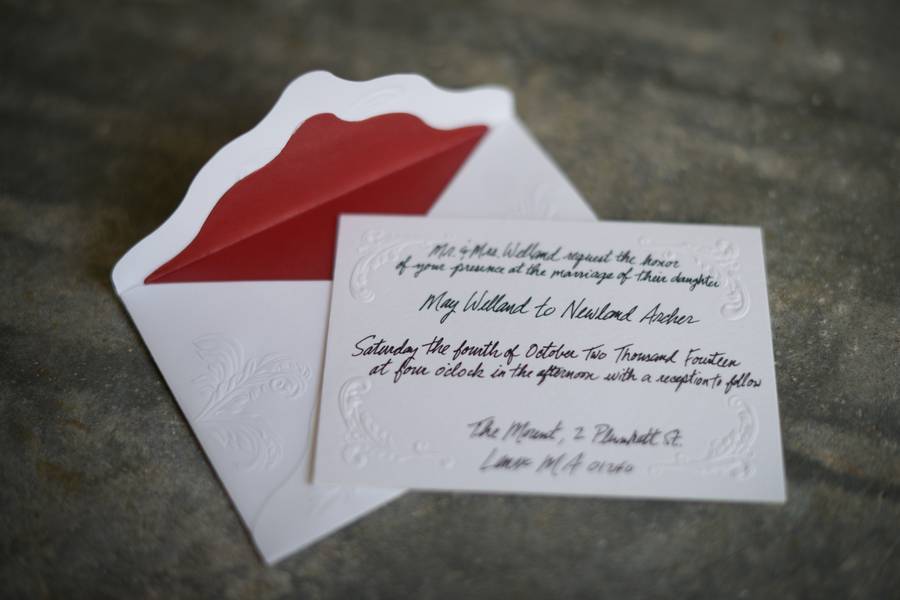 Mr. & Mrs. Welland request the honor
of your presence at the marriage of their daughter
May Welland to Newland Archer
Saturday the fourth of October Two Thousand Fourteen
at four o'clock in the afternoon with a reception to follow
The Mount, 2 Plunkett St.
Lenox MA 01240